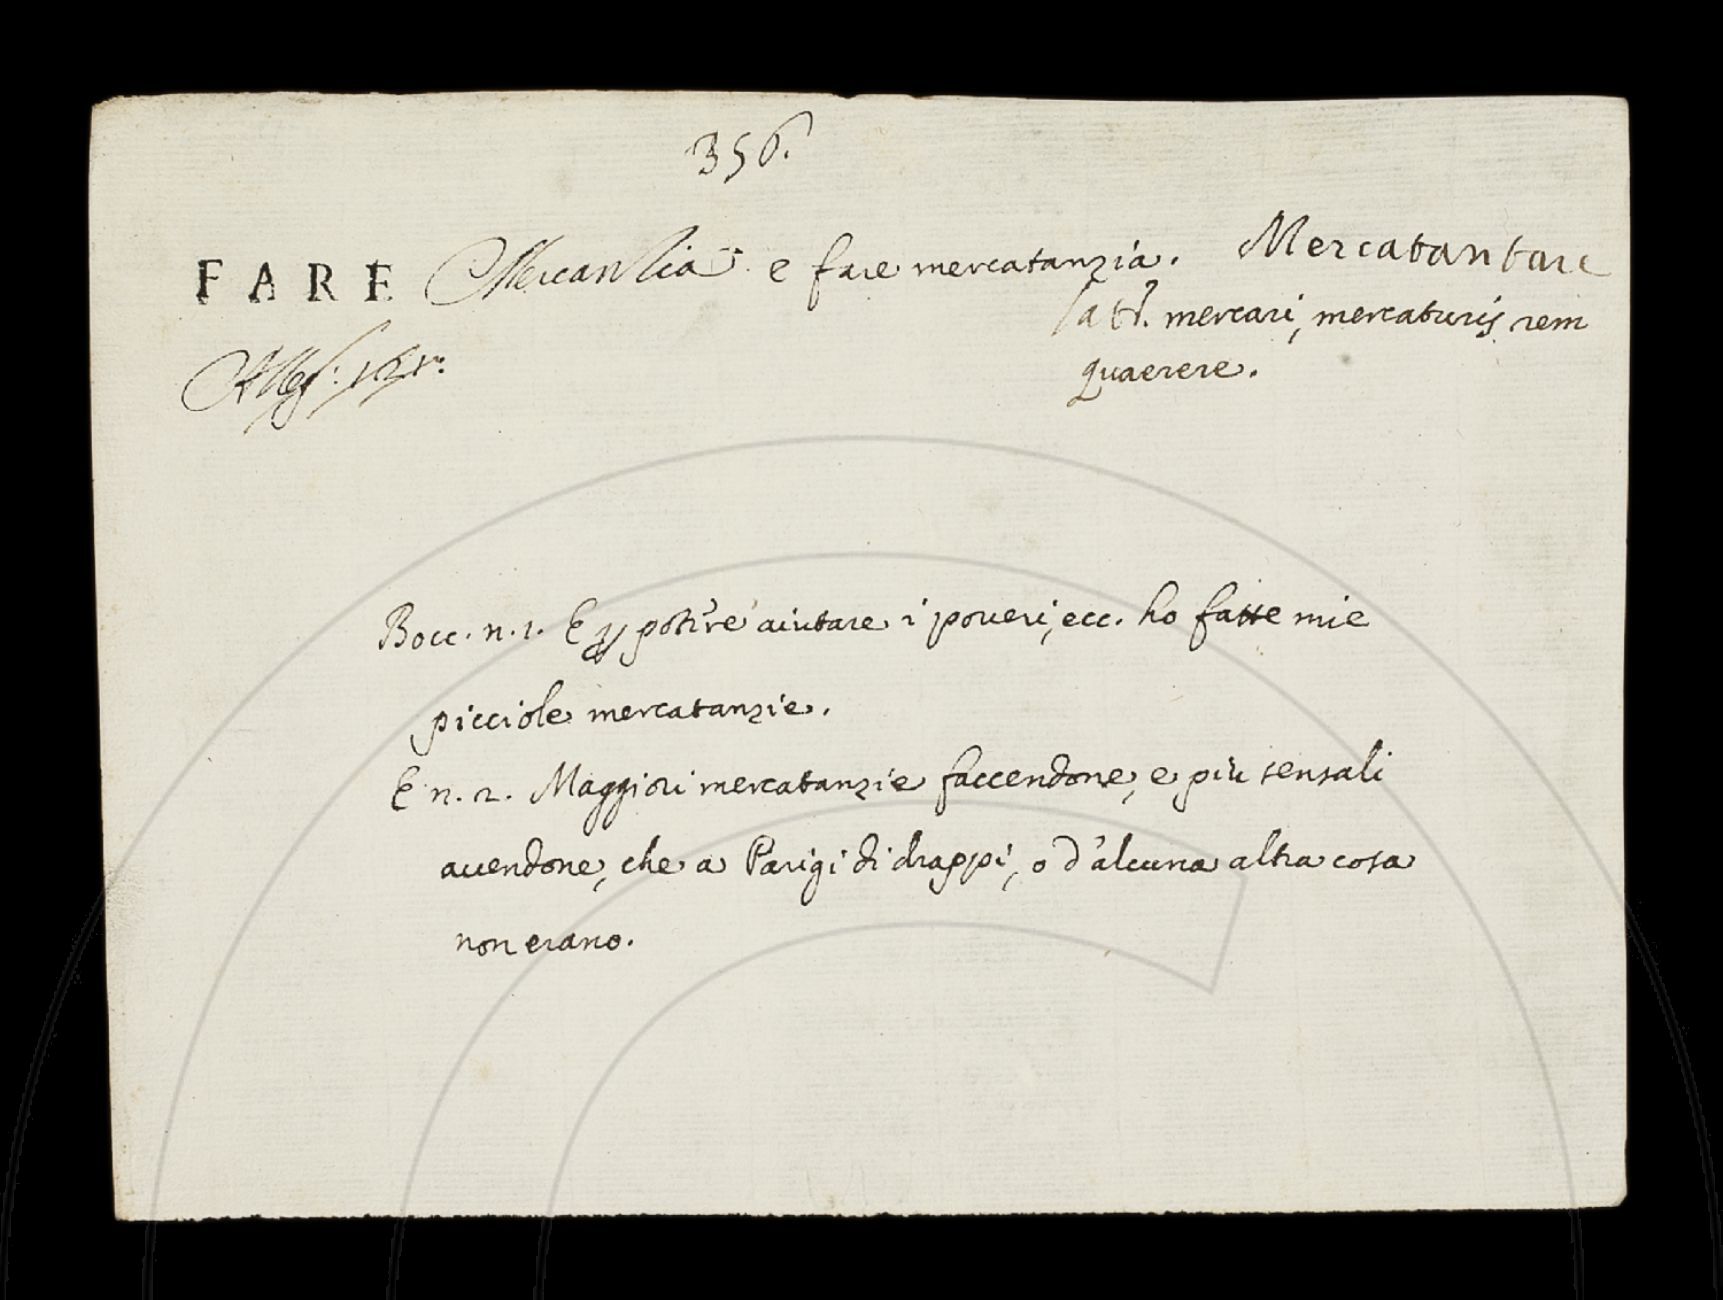 356.
FARE Mercanzia e fare mercatanzia. Mercatantare
latt. mercari, mercaturis rem
quaerere.
Bocc. n. 1. E p potere aiutare i poveri, ecc. ho fatte mie
picciole mercatanzie.
E n. 2. Maggiori mercatanzie faccendone, e più sensali
avendone, che a Parigi di drappi, o d'alcuna altra cosa
non erano.